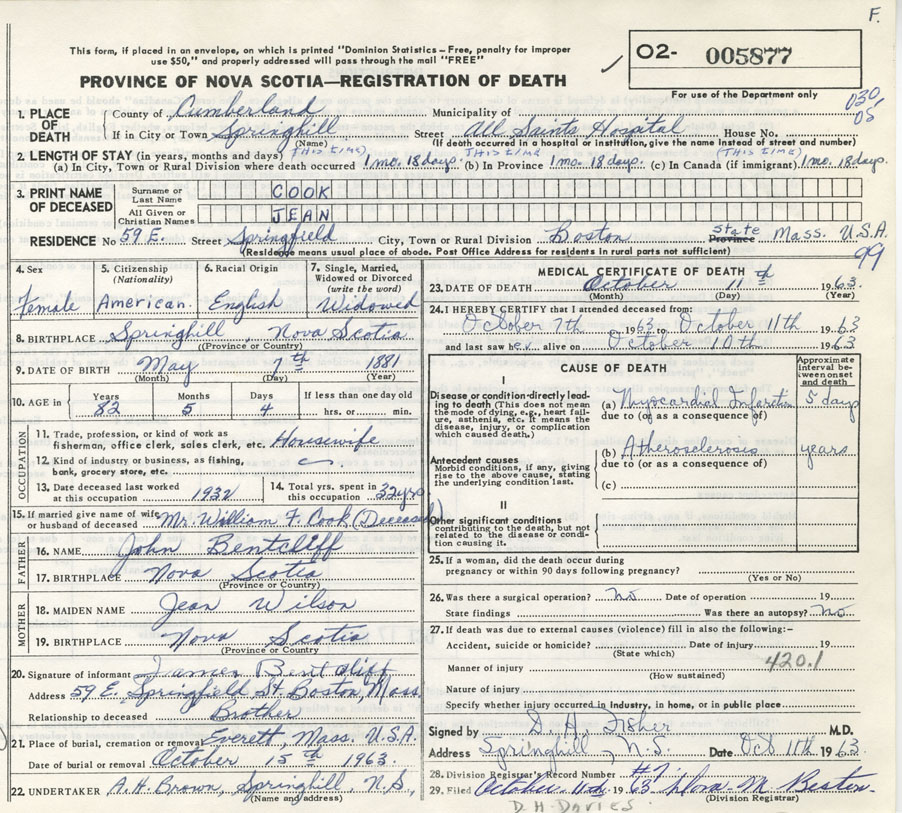 F.
This form, if placed in an envelope, on which is printed "Dominion Statistics – Free, penalty for improper
use $50," and properly addressed will pass through the mail "FREE"
PROVINCE OF NOVA SCOTIA—REGISTRATION OF DEATH
✓ O2- 005877
For use of the Department only
030,
05
1. PLACE OF DEATH County of Cumberland Municipality of
If in City or Town Springhill Street All Saints Hospital House No.
(Name) (If death occurred in a hospital or institution, give the name instead of street and number)
2. LENGTH OF STAY (in years, months and days) (THIS TIME) THIS TIME (THIS TIME)
(a) In City, Town or Rural Division where death occurred 1 mo. 18 days. (b) In Province 1 mo. 18 days. (c) In Canada (if immigrant) 1 mo. 18 days.
3. PRINT NAME OF DECEASED Surname or Last Name COOK
All Given or Christian Names JEAN
RESIDENCE No 59 E. Street Springfield City, Town or Rural Division Boston State Province Mass. U.S.A.
(Residence means usual place of abode. Post Office Address for residents in rural parts not sufficient)
99
4. Sex Female
5. Citizenship (Nationality) American.
6. Racial Origin English
7. Single, Married, Widowed or Divorced (write the word) Widowed
8. BIRTHPLACE Springhill, Nova Scotia
(Province or Country)
9. DATE OF BIRTH May 7th 1881
(Month) (Day) (Year)
10. AGE in Years 82 Months 5 Days 4 If less than one day old hrs. or min.
OCCUPATION
11. Trade, profession, or kind of work as
fisherman, office clerk, sales clerk, etc. Housewife
12. Kind of industry or business, as fishing,
bank, grocery store, etc.
13. Date deceased last worked
at this occupation 1932
14. Total yrs. spent in
this occupation 32 yrs
15. If married give name of wife
or husband of deceased Mr. William F. Cook (Deceased)
FATHER
16. NAME John Bentcliff
17. BIRTHPLACE Nova Scotia
(Province or Country)
MOTHER
18. MAIDEN NAME Jean Wilson
19. BIRTHPLACE Nova Scotia
(Province or Country
20. Signature of informant James Bentcliff
Address 59 E. Springfield St. Boston, Mass
Relationship to deceased Brother
21. Place of burial, cremation or removal Everett, Mass. U.S.A.
Date of burial or removal October 15th 1963.
22. UNDERTAKER A.H. Brown, Springhill, N.S.,
(Name and address)
MEDICAL CERTIFICATE OF DEATH
23. DATE OF DEATH October 11th 1963.
(Month) (Day) (Year)
24. I HEREBY CERTIFY that I attended deceased from:
October 7th 1963 to October 11th 1963
and last saw her alive on October 10th 1963
CAUSE OF DEATH
Approximate interval between onset and death
I
Disease or condition directly leading to death (This does not mean the mode of dying, e.g., heart failure, asthenia, etc. It means the disease, injury, or complication which caused death.)
(a) Myocardial Infarction 5 days
due to (or as a consequence of)
Antecedent causes
Morbid conditions, if any, giving rise to the above cause, stating the underlying condition last.
(b) Atherosclerosis years
due to (or as a consequence of)
(c)
II
Other significant conditions
contributing to the death, but not related to the disease or condition causing it.
25. If a woman, did the death occur during
pregnancy or within 90 days following pregnancy?
(Yes or No)
26. Was there a surgical operation? no Date of operation 19
State findings Was there an autopsy? no
27. If death was due to external causes (violence) fill in also the following:–
Accident, suicide or homicide? Date of injury 19
(State which)
Manner of injury 420.1
(How sustained)
Nature of injury
Specify whether injury occurred in industry, in home, or in public place
Signed by D. A. Fisher M.D.
Address Springhill, N.S. Date Oct 11th 1963.
28. Division Registrar's Record Number #7.
29. Filed October 11th 1963 M.
(Division Registrar)
D.H. DAVIES.